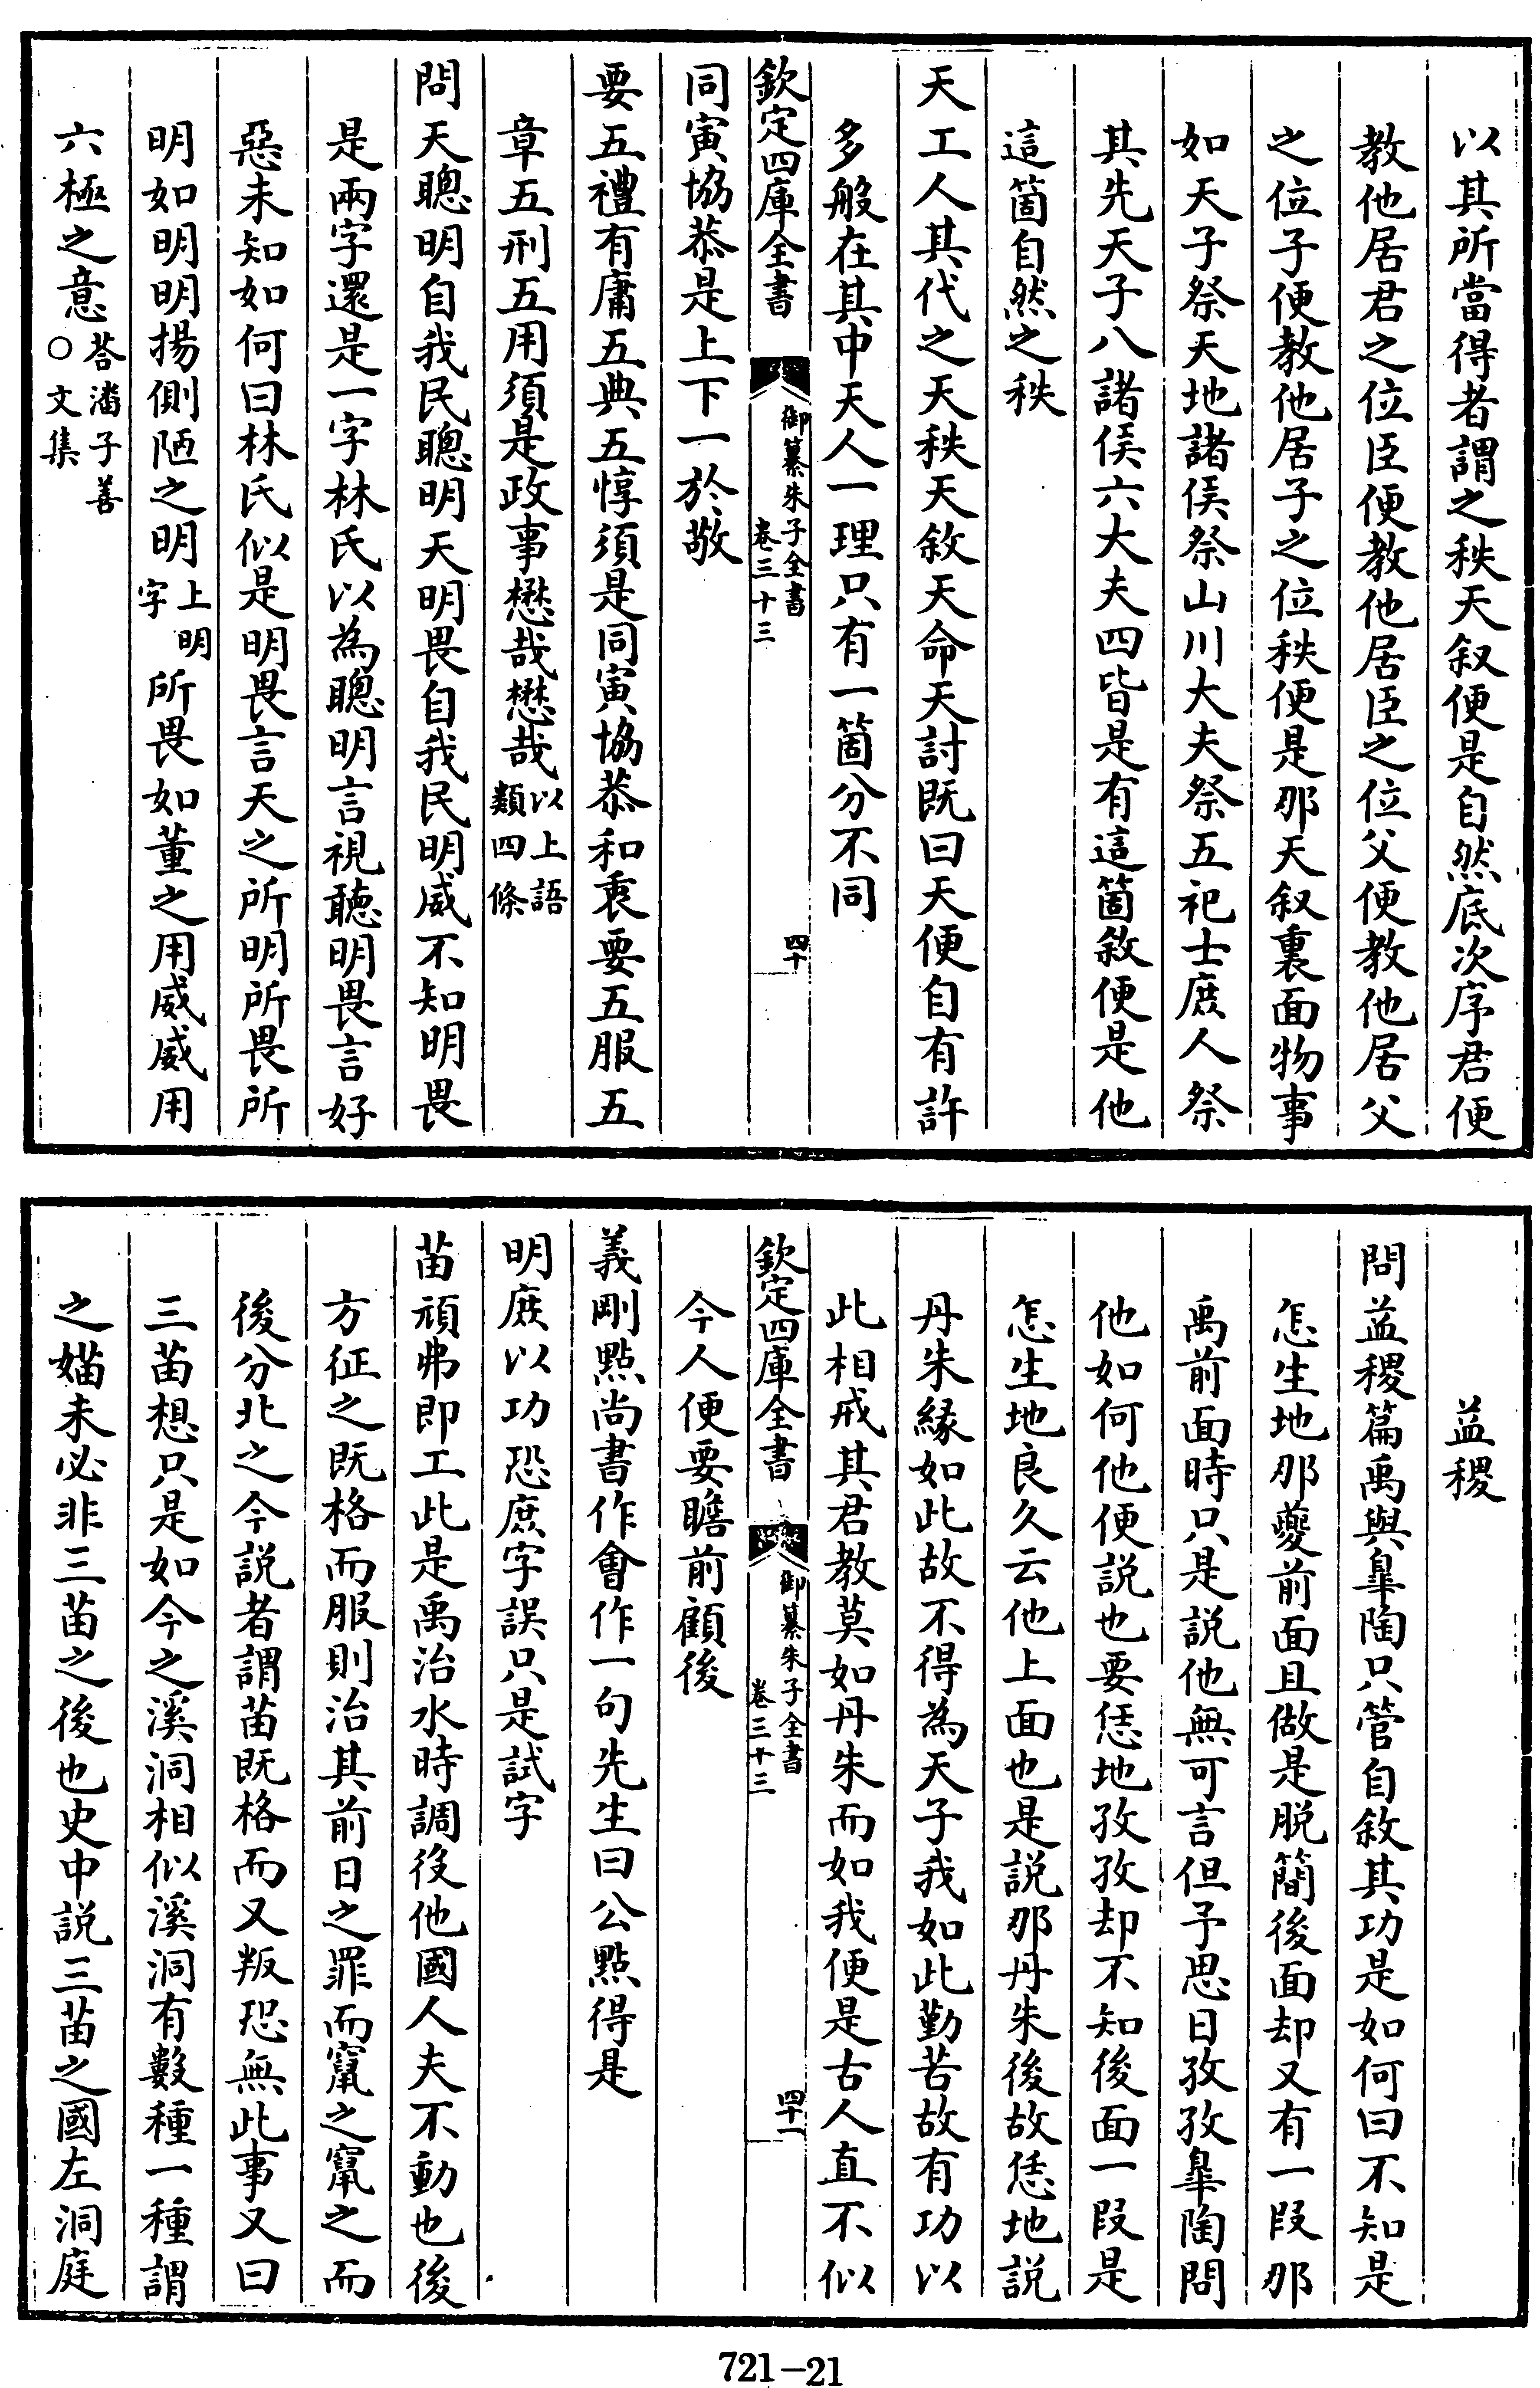 以其所當得者謂之秩天叙便是自然底次序君便
教他居君之位臣便教他居臣之位父便教他居父
之位子便教他居子之位秩便是那天叙裏面物事
如天子祭天地諸侯祭山川大夫祭五祀士庶人祭
其先天子八諸侯六大夫四皆是有這箇敘便是他
這箇自然之秩
天工人其代之天秩天敘天命天討既曰天便自有許
多般在其中天人一理只有一箇分不同
欽定四庫全書
御纂朱子全書
卷三十三
四十
同寅協恭是上下一於敬
要五禮有庸五典五惇須是同寅協恭和衷要五服五
章五刑五用須是政事懋哉懋哉以上語
類四條
問天聰明自我民聰明天明畏自我民明威不知明畏
是兩字還是一字林氏以為聰明言視聽明畏言好
惡未知如何曰林氏似是明畏言天之所明所畏所
明如明明揚側陋之明上明
字所畏如董之用威威用
六極之意荅潘子善
○文集
益稷
問益稷篇禹與臯陶只管自敘其功是如何曰不知是
怎生地那夔前面且做是脱簡後面却又有一段那
禹前面時只是説他無可言但予思日孜孜臯陶問
他如何他便説也要恁地孜孜却不知後面一段是
怎生地良久云他上面也是説那丹朱後故恁地説
丹朱緣如此故不得為天子我如此勤苦故有功以
此相戒其君教莫如丹朱而如我便是古人直不似
欽定四庫全書
御纂朱子全書
卷三十三
四十一
今人便要瞻前顧後
義剛點尚書作會作一句先生曰公點得是
明庶以功恐庶字誤只是試字
苗頑弗即工此是禹治水時調役他國人夫不動也後
方征之既格而服則治其前日之罪而竄之竄之而
後分北之今説者謂苗既格而又叛恐無此事又曰
三苗想只是如今之溪洞相似溪洞有數種一種謂
之媌未必非三苗之後也史中説三苗之國左洞庭
721-21